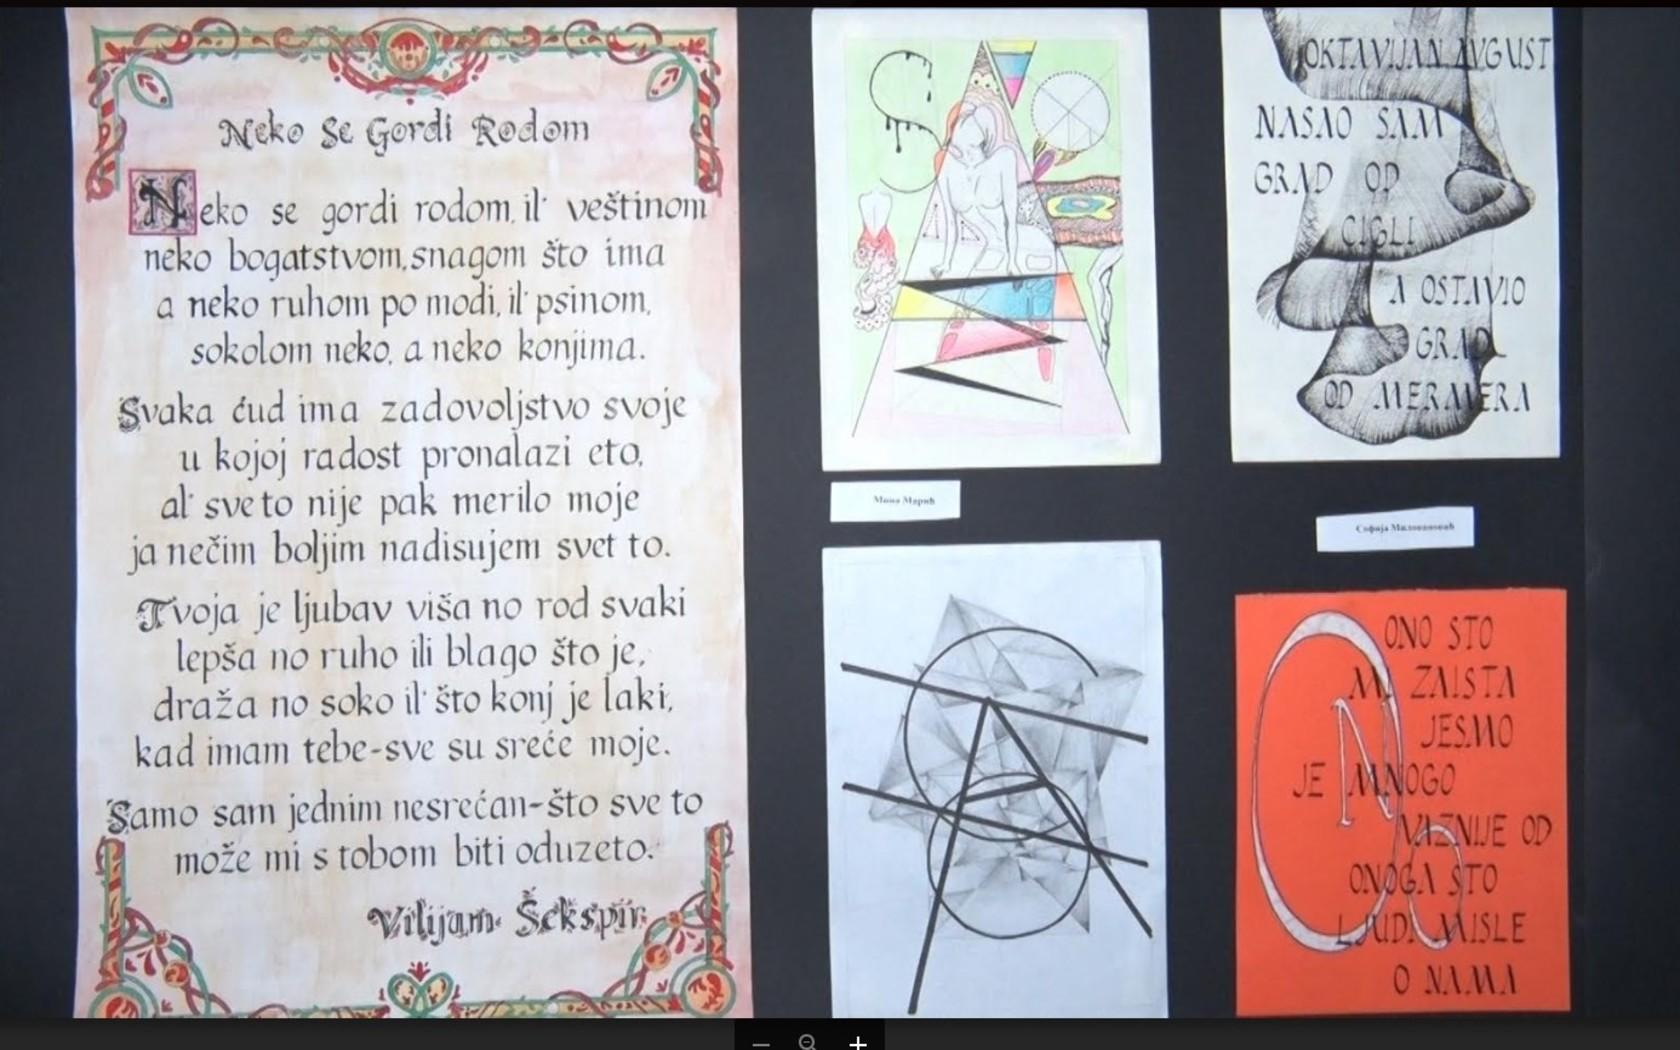 Neko Se Gordi Rodom
Neko se gordi rodom, il' veštinom
neko bogatstvom, snagom što ima
a neko ruhom po modi, il' psinom,
sokolom neko, a neko konjima.
Svaka ćud ima zadovoljstvo svoje
u kojoj radost pronalazi eto,
al' sve to nije pak merilo moje
ja nečim boljim nadisujem svet to.
Tvoja je ljubav viša no rod svaki
lepša no ruho ili blago što je,
draža no soko il' što konj je laki,
kad imam tebe-sve su sreće moje.
Samo sam jednim nesrećan-što sve to
može mi s tobom biti oduzeto.
Vilijam Šekspir
Мина Марић
OKTAVIJAN AVGUST
NASAO SAM
GRAD OD
CIGLI
A OSTAVIO
GRAD
OD MERMERA
Софија Миловановић
ONO STO
MI ZAISTA
JESMO
JE MNOGO
VAZNIJE OD
ONOGA STO
LJUDI MISLE
O NAMA